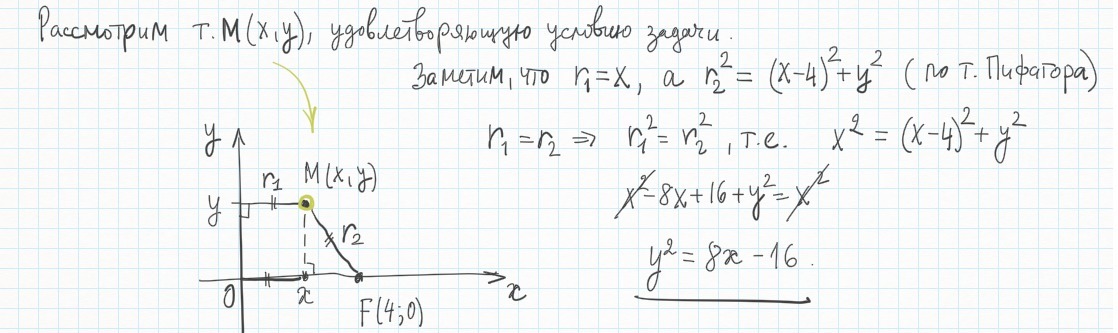 Рассмотрим т. M(x,y), удовлетворяющую условию задачи.
Заметим, что r₁=x, а r₂²=(x-4)²+y² (по т. Пифагора)
r₁=r₂ ⇒ r₁²=r₂², т.е. x²=(x-4)²+y²
x²-8x+16+y²=x²
y²=8x-16.
y
r₁
M(x,y)
y
r₂
0
x
x
F(4;0)